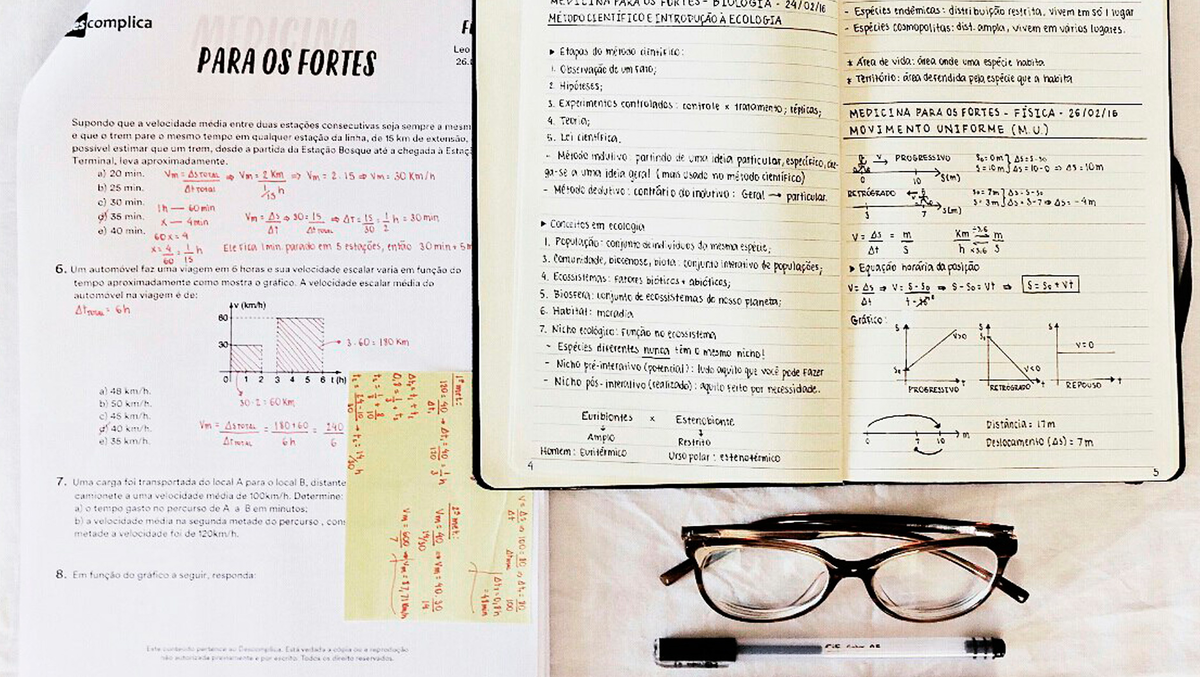 complica
MEDICINA
PARA OS FORTES
Leo
Supondo que a velocidade média entre duas estações consecutivas seja sempre a mesm
e que o trem pare o mesmo tempo em qualquer estação da linha, de 15 km de extensão,
possível estimar que um trem, desde a partida da Estação Bosque até a chegada à Estaç
Terminal, leva aproximadamente.
a) 20 min.
b) 25 min.
c) 30 min.
d) 35 min.
e) 40 min.
Vm = ΔS TOTAL / Δt TOTAL ⇒ Vm = 2 Km / 1/15 h ⇒ Vm = 2 . 15 ⇒ Vm = 30 Km/h
1h — 60min
x — 4min
60x = 4
x = 4/60 = 1/15 h
Vm = ΔS/Δt ⇒ 30 = 15/Δt TOTAL ⇒ Δt = 15/30 = 1/2 h = 30 min
Ele fica 1min. parado em 5 estações, então 30 min + 5m
6. Um automóvel faz uma viagem em 6 horas e sua velocidade escalar varia em função do
tempo aproximadamente como mostra o gráfico. A velocidade escalar média do
automóvel na viagem é de:
Δt TOTAL = 6h
v (km/h)
60
30
0 1 2 3 4 5 6 t (h)
3 . 60 = 180 Km
30 . 2 = 60 Km
a) 48 km/h.
b) 50 km/h.
c) 45 km/h.
d) 40 km/h.
e) 35 km/h.
Vm = ΔS TOTAL / Δt TOTAL = 180+60 / 6h = 240 / 6
7. Uma carga foi transportada do local A para o local B, distante
camionete a uma velocidade média de 100km/h. Determine:
a) o tempo gasto no percurso de A a B em minutos;
b) a velocidade média na segunda metade do percurso, con
metade a velocidade foi de 120km/h.
8. Em função do gráfico a seguir, responda:
Este conteúdo pertence ao Descomplica. Está vedada a cópia ou a reprodução
não autorizada previamente e por escrito. Todos os direitos reservados.
1ª met:
120 = 40/Δt ⇒ Δt₁ = 40/120 = 1/3 h
Δt = t₁ + t₂
2ª met:
V = ΔS/Δt ⇒ 100 = 80/Δt ⇒ Δt = 80/100
Δt = 0,8h
= 48min
MEDICINA PARA OS FORTES - BIOLOGIA - 24/02/16
MÉTODO CIENTÍFICO E INTRODUÇÃO À ECOLOGIA
▸ Etapas do método científico:
1. Observação de um fato;
2. Hipóteses;
3. Experimentos controlados: controle x tratamento; réplicas;
4. Teoria;
5. Lei científica.
- Método indutivo: partindo de uma ideia particular, específico, che-
ga-se a uma ideia geral (mais usado no método científico)
- Método dedutivo: contrário do indutivo: Geral → particular.
▸ Conceitos em ecologia
1. População: conjunto de indivíduos da mesma espécie;
3. Comunidade, biocenose, biota: conjunto interativo de populações;
4. Ecossistemas: Fatores bióticos + abióticos;
5. Biosfera: conjunto de ecossistemas do nosso planeta;
6. Habitat: moradia
7. Nicho ecológico: Função no ecossistema
- Espécies diferentes nunca têm o mesmo nicho!
- Nicho pré-interativo (potencial): tudo aquilo que você pode fazer
- Nicho pós-interativo (realizado): aquilo feito por necessidade.
Euribiontes x Estenobionte
↓ ↓
Amplo Restrito
Homem: Euritérmico Urso polar: estenotérmico
4
- Espécies endêmicas: distribuição restrita, vivem em só 1 lugar
- Espécies cosmopolitas: dist. ampla, vivem em vários lugares.
* Área de vida: área onde uma espécie habita
* Território: área defendida pela espécie que a habita
MEDICINA PARA OS FORTES - FÍSICA - 26/02/16
MOVIMENTO UNIFORME (M.U.)
V PROGRESSIVO
0 10 S(m)
S₀ = 0m ΔS = S-S₀
S = 10m ΔS = 10-0 ⇒ ΔS = 10m
RETRÓGRADO
V
3 7 S(m)
S₀ = 7m ΔS = S-S₀
S = 3m ΔS = 3-7 ⇒ ΔS = -4m
V = ΔS/Δt = m/s
Km/h ÷3.6 x3.6 m/s
▸ Equação horária da posição
V = ΔS/Δt ⇒ V = S-S₀/t-t₀ ⇒ S-S₀ = Vt ⇒ S = S₀ + Vt
Gráfico:
S S₀ V>0 t
PROGRESSIVO
S S₀ V<0 t
RETRÓGRADO
S V=0 t
REPOUSO
0 7 10 m
Distância = 17m
Deslocamento (ΔS) = 7m
5